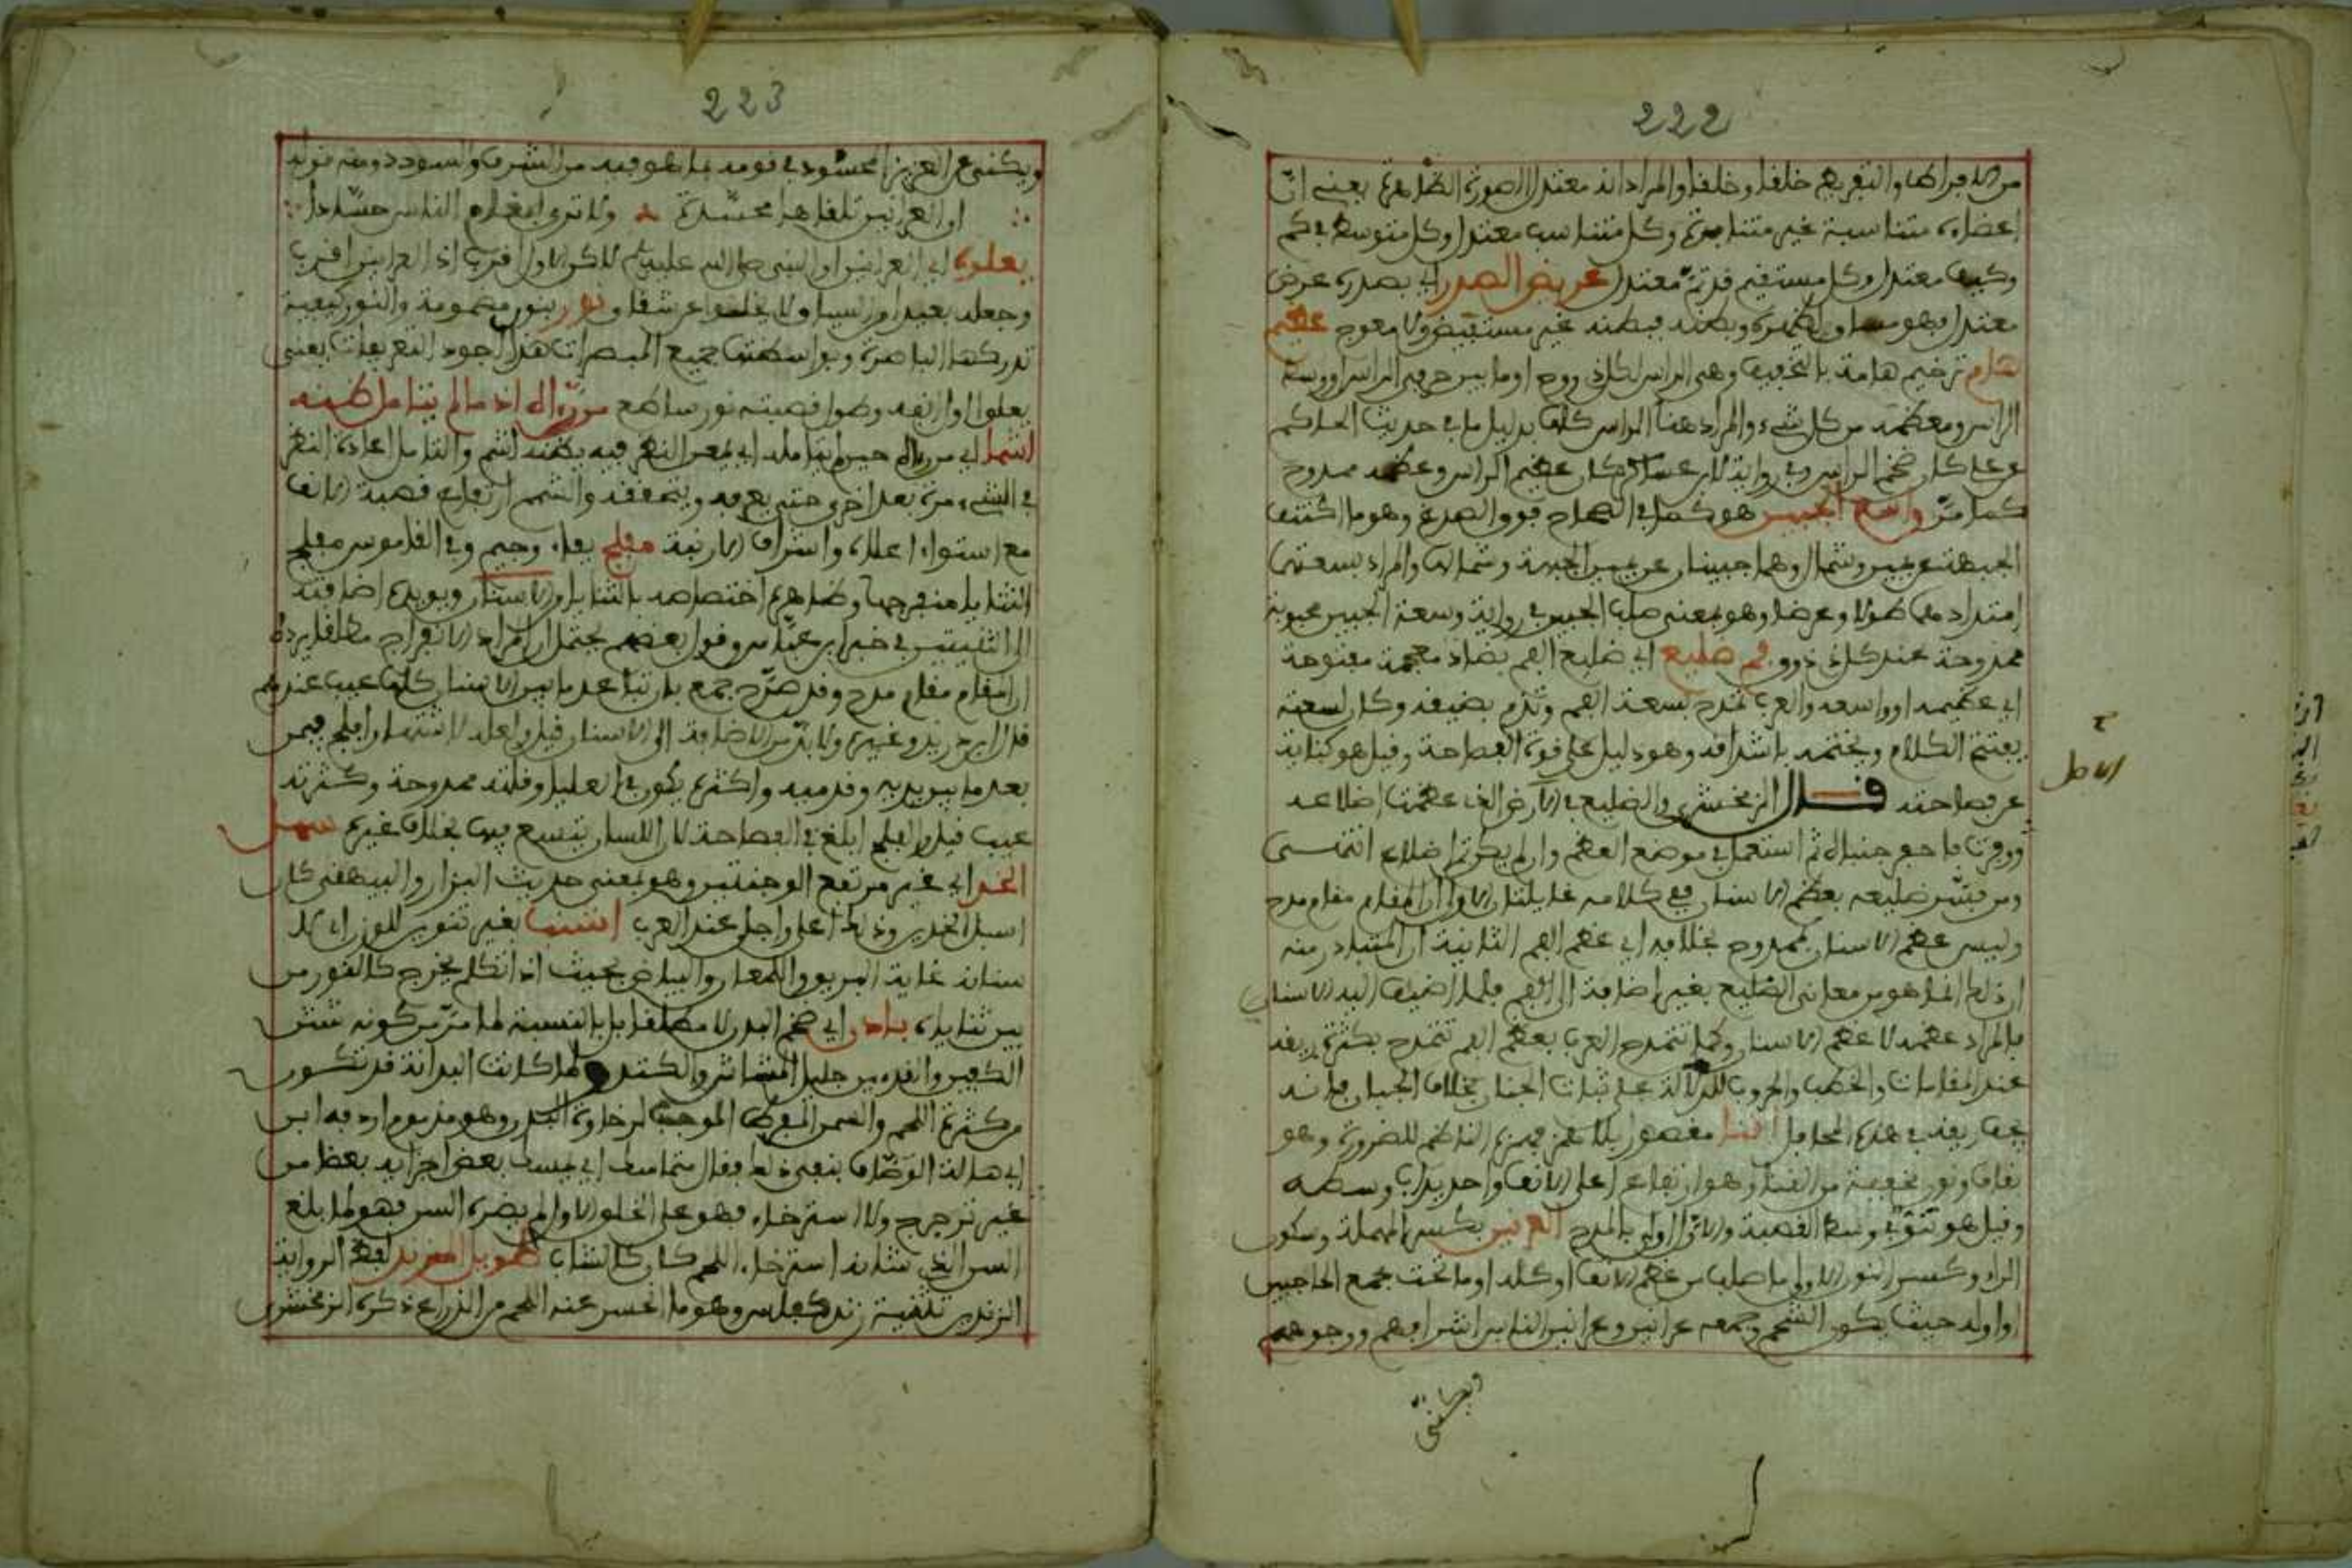 222
من الافراط والتفريط خلقا وخلقا والمراد انه معتدل الصورة الظاهرة بمعنى ان
اعضاءه متناسبة غير متنافرة وكل متناسب معتدل وكل متوسط في كم
وكيف معتدل وكل مستقيم قدمه معتدل عريض الصدر اي بصدره عرض
معتدل فهو مساو لظهره وبطنه فبطنه غير مستفيض ولا معوج عظيم
هام ترخيم هامة بالتخفيف وهي الراس لكل ذي روح او ما بين حرفي الراس او وسط
الراس ومعظمه من كل شيء والمراد هنا الراس كله بدليل ما في حديث الحاكم
عن علي كان ضخم الراس وفي رواية لابن عساكر كان عظيم الراس وعظمه ممدوح
كما مر واسع الجبين هو كما في الصحاح فوق الصدغ وهو ما اكتنف
الجبهة عن يمين وشمال وهما جبينان عن يمين الجبهة وشمالها والمراد بسعتها
امتدادها طولا وعرضا وهو بمعنى صلت الجبين في رواية وسعة الجبين محبوبة
ممدوحة عند كل ذي ذوق فم ضليع اي ضليع الفم بضاد معجمة مفتوحة
اي عظيمه او واسعه والعرب تمدح بسعة الفم وتذم بضيقه وكان لسعته
يفتتح الكلام ويختمه باشداقه وهو دليل على قوة الفصاحة وقيل هو كناية
عن فصاحته قال الزمخشري والضليع في الاصل الذي عظمت اضلاعه
ووفرت فاجفر جنباه ثم استعمل في موضع العظم وان لم يكن ثم اضلاع انتهى
ومن فسر ضليعه بعظم الاسنان ففي كلامه غايلتان الاولى ان المقام مقام مدح
وليس عظم الاسنان بممدوح بخلافه اي عظم الفم الثانية ان المتبادر منه
ان ذلك انما هو من معاني الضليع بغير اضافة الى الفم فلما اضيف اليه الاسنان
فالمراد عظمه لا عظم الاسنان وكما تتمدح العرب بعظم الفم تتمدح بكثرة ريقه
عند المقامات والخطب والحروب للدلالة على ثبات الجنان بخلاف الجبان فانه
يجف ريقه في هذه المحافل اقنا مقصور بلا همز فهمزه الناظم للضرورة وهو
بقاف ونون مخففة من القنا وهو ارتفاع اعلى الانف واحديداب وسطه
وقيل هو نتوء وسط القصبة والاول اولى بالمدح العرنين بكسر المهملة وسكون
الراء وكسر النون الاولى ما صلب من عظم الانف او كله او ما تحت مجمع الحاجبين
او اوله حيث يكون الشمم وجمعه عرانين وعرانين الناس اشرافهم ووجوههم
ويكنى
الاصل
223
ويكنى عن العزيز المحسود في قومه بما هو فيه من الشرف والسودد ومنه قوله
ان العرانين تلقاها محسدة ولا ترى للئام الناس حسادا
يعلوه اي العرانين او النبي صلى الله عليه وسلم لاكن الاول اقرب اذ العرانين اقرب
نور بنون مضمومة والنور كيفية
تدركها الباصرة وبواسطتها جميع المبصرات هذا اجود التعريفات يعني
يعلو اول انفه وطول قصبته نور ساطع من راه اذ ما لم يتامل ظنه
اشما اي من راه حين لم يتامله اي يمعن النظر فيه يظنه اشم والتامل اعادة النظر
في الشيء مرة بعد اخرى حتى يعرفه ويتحققه والشمم ارتفاع قصبة الانف
مع استواء اعلاه واشراف الارنبة مفلج بفاء وجيم وفي القاموس مفلج
الثنايا منفرجها وظاهره اختصاصه بالثنايا دون الاسنان ويويده اضافته
الى الثنيتين في خبر ابن عباس وقول بعضهم يحتمل ان المراد الانفراج مطلقا يرده
ان المقام مقام مدح وقد صرح جمع بان تباعد ما بين الاسنان كلها عيب عندهم
قال ابن دريد وغيره ولا بد من الاضافة الى الاسنان قيل ولعله لاشتهار افلج فيمن
بعد ما بين يديه وقدميه واكثره يكون في العليا وقلته ممدوحة وكثرته
عيب قيل والفلج ابلغ في الفصاحة لان اللسان يتسع فيها بخلاف غيره سهل
الخد اي غير مرتفع الوجنتين وهو بمعنى حديث البزار والبيهقي كان
اسيل الخدين وذلك اعلى واجل عند العرب اشنبا بغير تنوين للوزن اي لا
سنانه غاية البريق واللمعان والبياض بحيث اذا تكلم يخرج كالنور من
بين ثناياه بادن اي ضخم البدن لا مطلقا بل بالنسبة لما مر من كونه شثن
الكفين والقدمين جليل المشاش والكتد ولما كانت البدانة قد تكون
من كثرة اللحم والسمن المفرط الموجب لرخاوة البدن وهو مذموم اردفه ابن
ابي هالة الوصاف بنفي ذلك فقال متماسك اي يمسك بعض اجزايه بعضا من
غير ترجرج ولا استرخاء فهو على الخلق الاول لم يضره السن فهو لما بلغ
السن الذي شانه استرخاء اللحم كان كالشاب طويل الزند لفظ الرواية
الزندين تثنية زند كفلس وهو ما انحسر عنه اللحم من الذراع ذكره الزمخشري